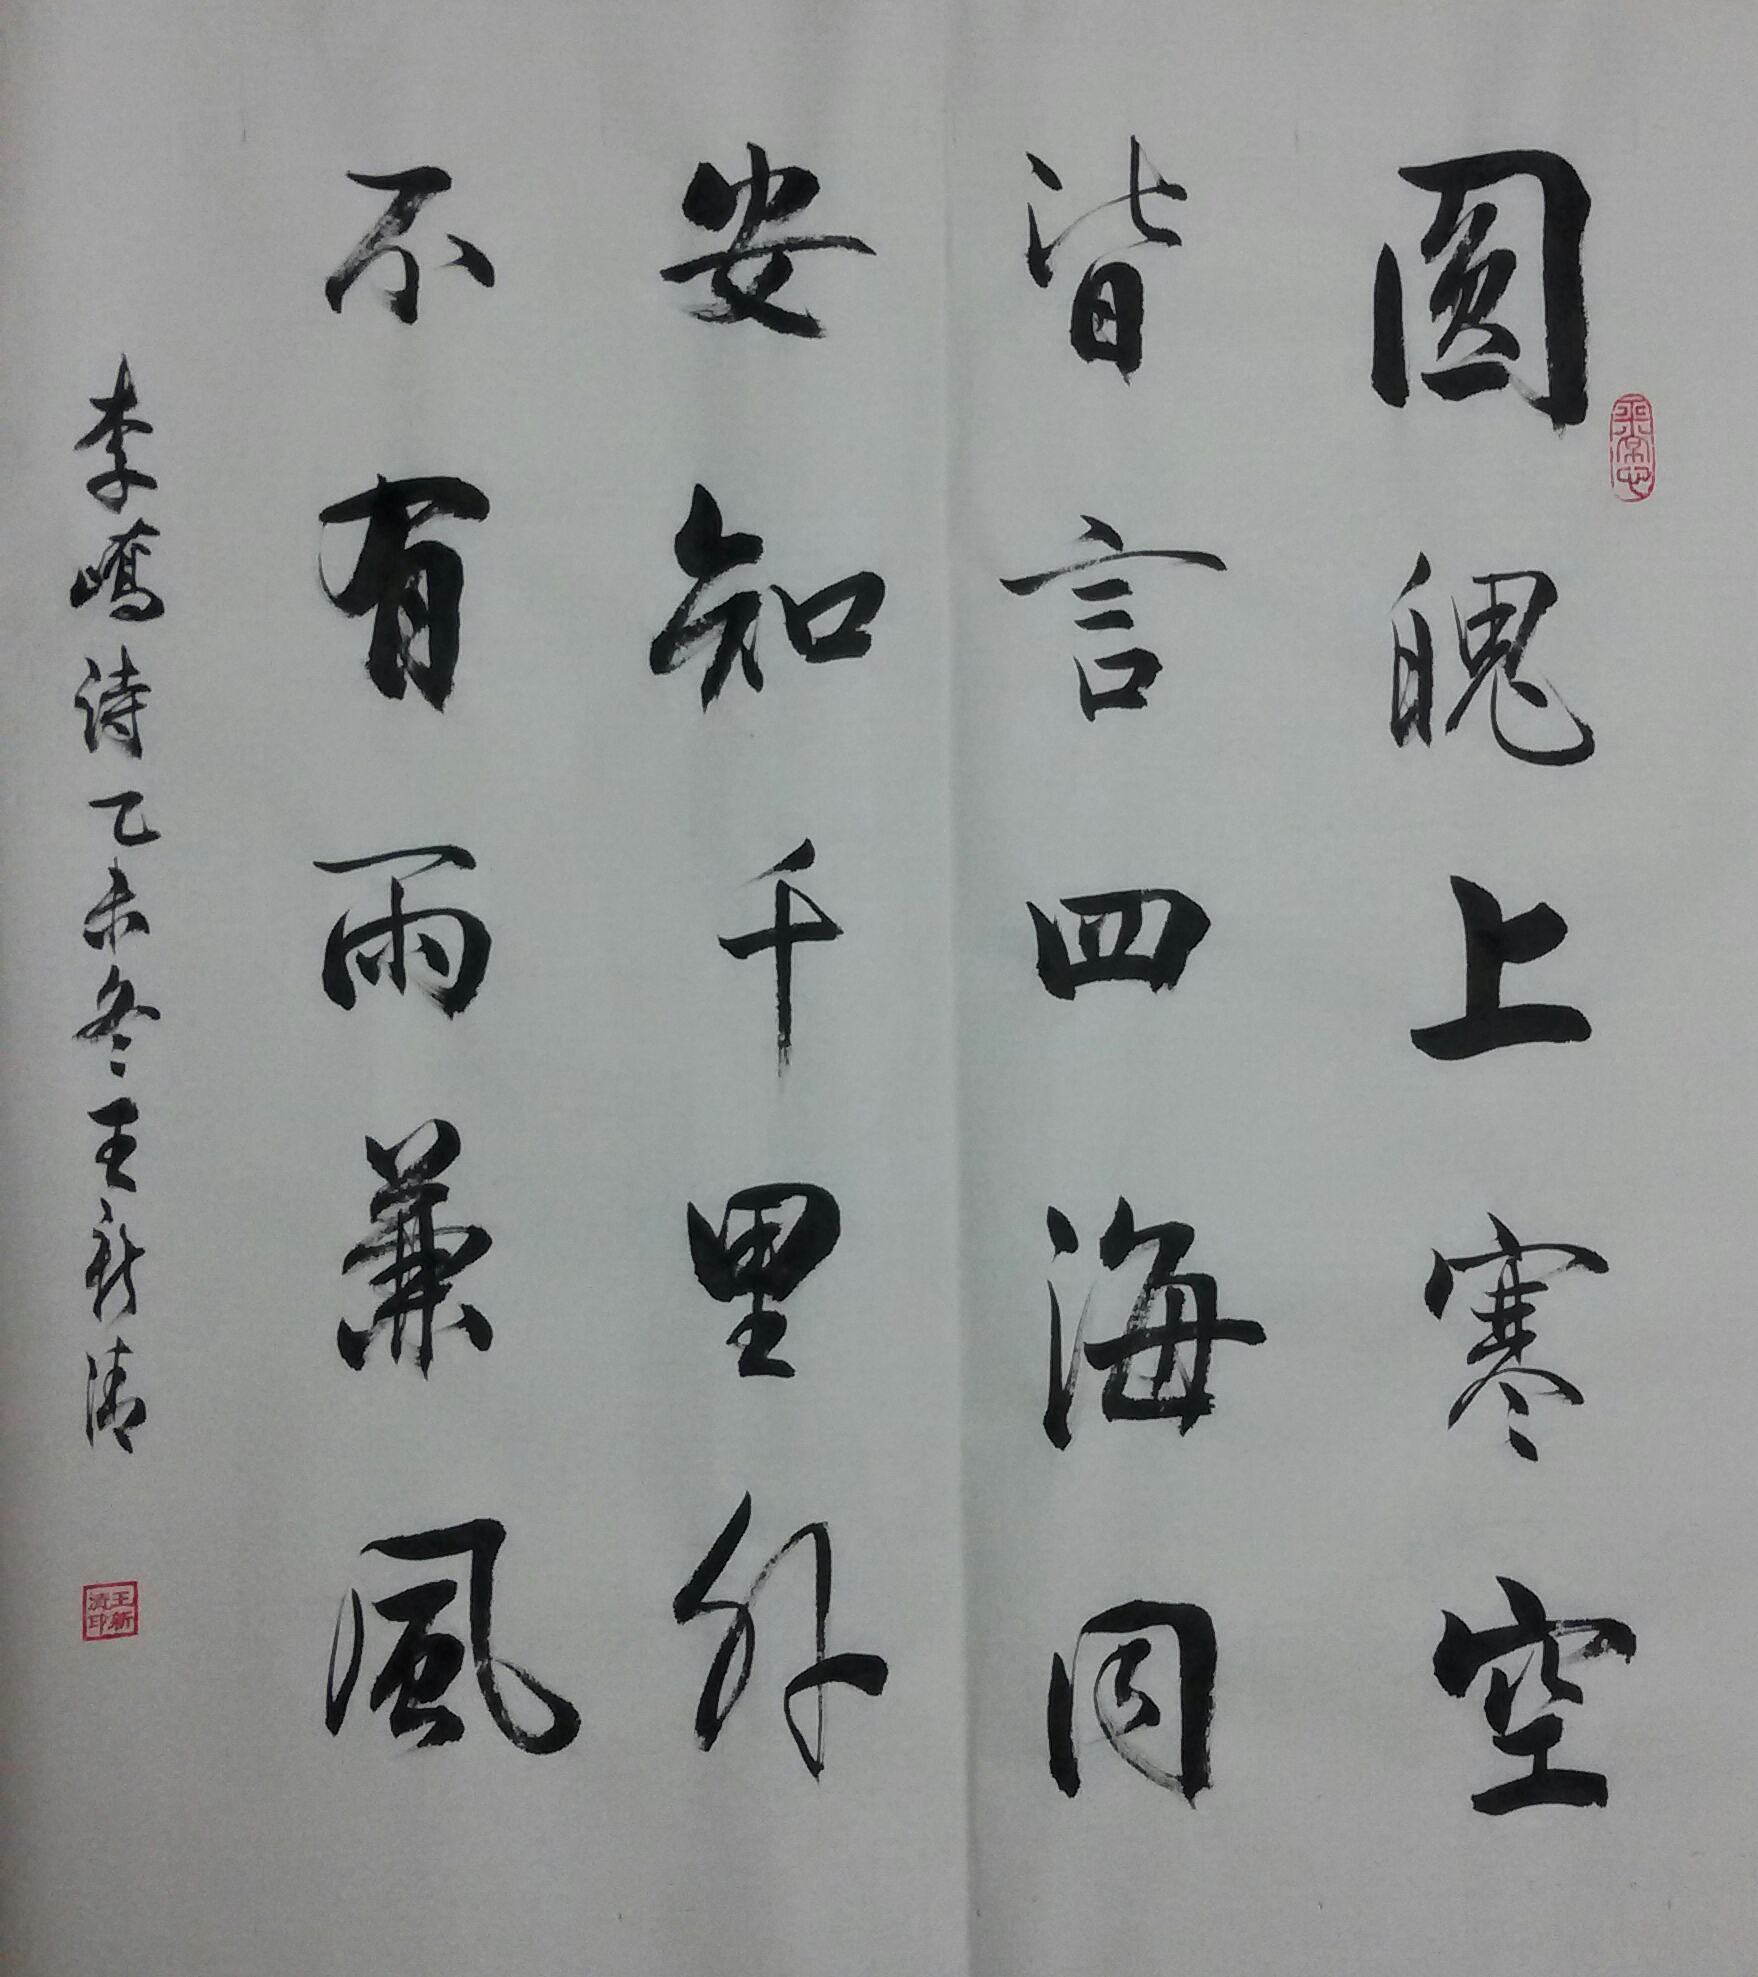 圓魄上寒空
皆言四海同
安知千里外
不有雨兼風
李嶠詩乙未冬王新清
平常心
王新清印